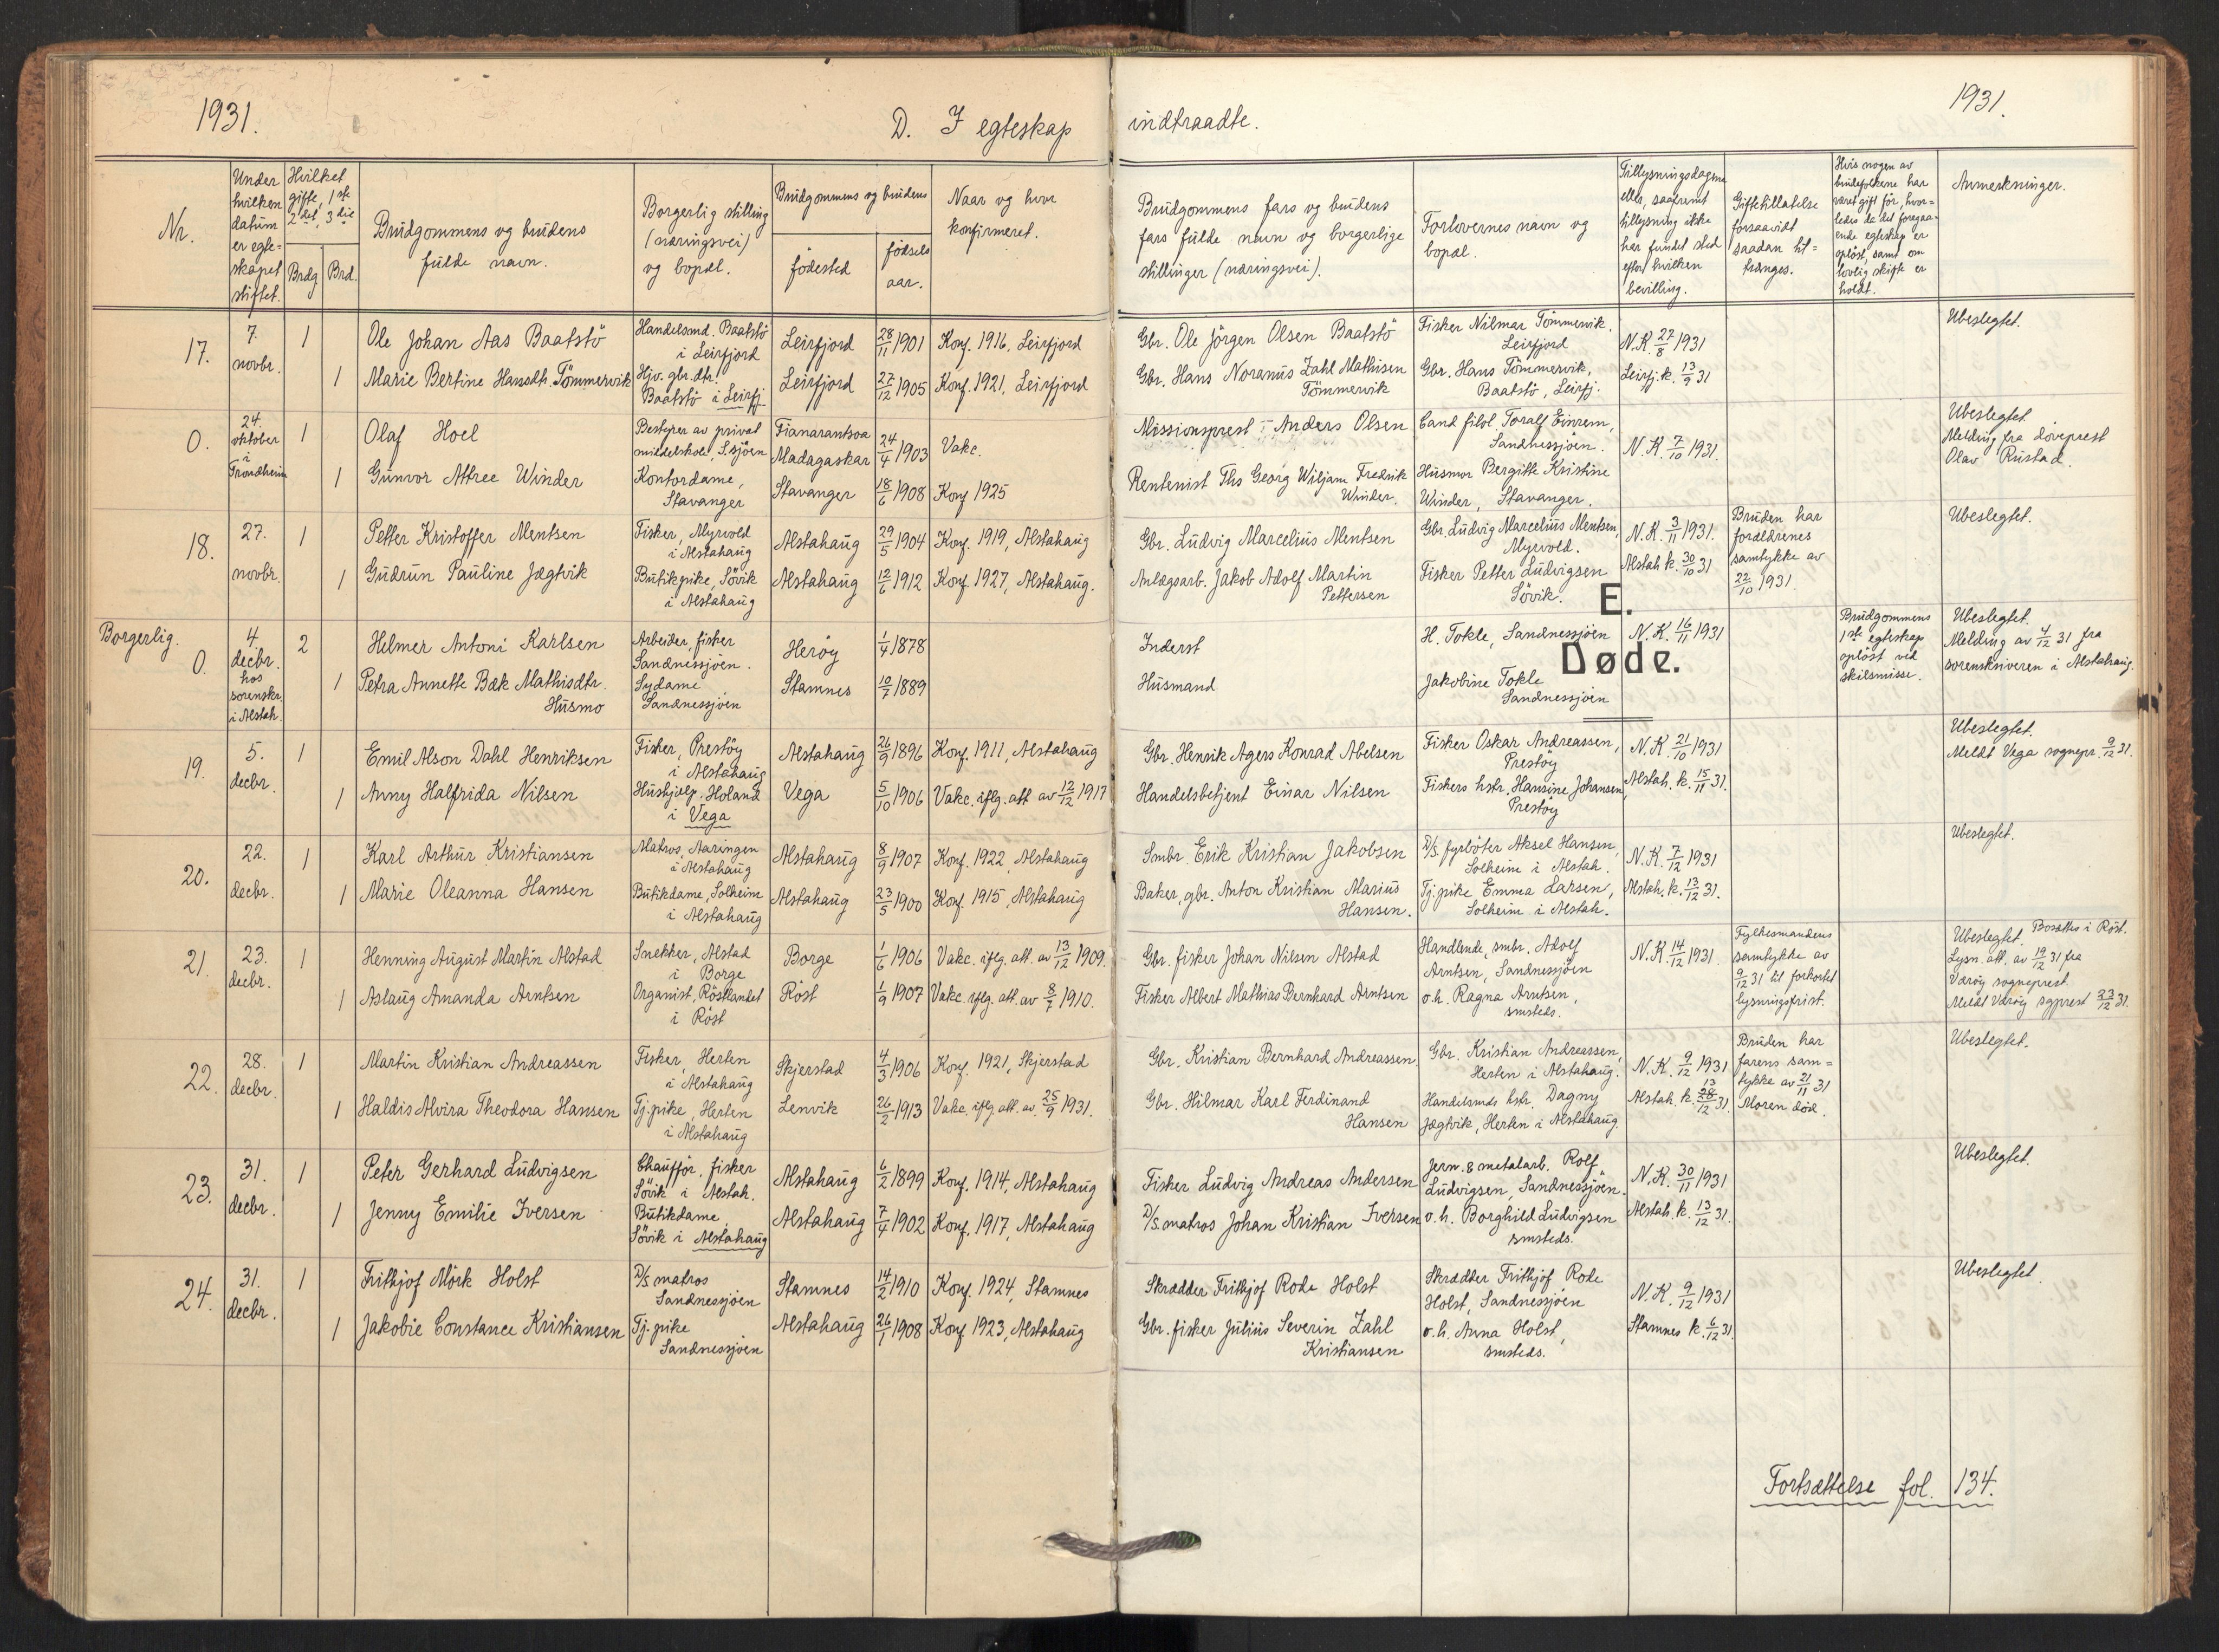 1931.
D. I egteskap
indtraadte.
1931.
Nr.
Under hvilken datum er egte= skapet stiftet.
Hvilket gifte, 1ste 2det, 3die
Brdg
Brd.
Brudgommens og brudens fulde navn.
Borgerlig stilling (næringsvei) og bopæl.
Brudgommens og brudens
fødested
fødsels aar.
Naar og hvor konfirmeret.
Brudgommens fars og brudens fars fulde navn og borgerlige stillinger (næringsvei).
Forlovernes navn og bopæl.
Tillysningsdagene eller, saafremt tillysning ikke har fundet sted efter hvilken bevilling.
Giftetilladelse forsaavidt saadan til= trænges.
Hvis nogen av brudefolkene har været gift før, hvor= ledes da det foregaa= ende egteskap er opløst, samt om lovlig skifte er holdt.
Anmerkninger.
17.
7. novbr.
1 Ole Johan Aas Baatstö Handelsmd. Baatstö i Leirfjord Leirfjord 28/11 1901 Konf. 1916, Leirfjord Gbr. Ole Jörgen Olsen Baatstö Fisker Nilmar Tömmervik. Leirfjord N.K. 27/8 1931 Ubeslegtet.
1 Marie Bertine Hansdtr. Tömmervik Hjv. gbr.dtr. Baatstö i Leirfj. Leirfjord 27/12 1905 Konf. 1921, Leirfjord Gbr. Hans Noranus Zahl Mathisen Tömmervik Gbr. Hans Tömmervik, Baatstö, Leirfj. Leirfj. k. 13/9 31
0.
24. oktober i Trondheim
1 Olaf Hoel Bestyrer av privat middelskole, S.sjöen Fianarantsoa Madagaskar 24/4 1903 Vakc. Missionsprest Anders Olsen Cand filol Toralf Einrem, Sandnessjöen. N.K. 7/10 1931. Ubeslegtet. Melding fra döveprest Olav Rustad.
1 Gunvor Attree Winder Kontordame, Stavanger Stavanger 18/6 1908 Konf 1925 Rentenist Ths Georg Wiljam Fredrik Winder. Husmor Bergitte Kristine Winder, Stavanger.
18.
27. novbr.
1 Petter Kristoffer Mentsen Fisker, Myrvold i Alstahaug Alstahaug 29/5 1904 Konf. 1919, Alstahaug Gbr. Ludvig Marcelius Mentsen Gbr. Ludvig Marcelius Mentsen, Myrvold. N.K. 3/11 1931. Bruden har forældrenes samtykke av 22/10 1931. Ubeslegtet.
1 Gudrun Pauline Jægtvik Butikpike, Sövik i Alstahaug Alstahaug 12/6 1912 Konf. 1927, Alstahaug. Anlægsarb. Jakob Adolf Martin Pettersen Fisker Petter Ludvigsen Sövik. Alstah k. 30/10 31
E.
Døde.
Borgerlig.
0.
4. decbr. hos sorenskr. i Alstah.
2 Helmer Antoni Karlsen Arbeider, fisker Sandnessjöen. Heröy 1/4 1878 Inderst H. Tokle, Sandnessjöen N.K. 16/11 1931 Brudgommens 1ste egteskap oplöst ved skilsmisse. Ubeslegtet. Melding av 4/12 31 fra sorenskriveren i Alstahaug.
1 Petra Annette Bæk Mathisdtr. Husmo Sydame Sandnessjöen Stamnes 10/7 1889 Husmand Jakobine Tokle Sandnessjöen
19.
5. decbr.
1 Emil Alson Dahl Henriksen Fisker, Prestöy i Alstahaug Alstahaug 26/9 1896 Konf. 1911, Alstahaug Gbr. Henrik Agers Konrad Abelsen Fisker Oskar Andreassen, Prestöy N.K. 21/10 1931 Ubeslegtet. Meldt Vega sognepr. 9/12 31.
1 Anny Halfrida Nilsen Hushjelp. Holand i Vega Vega 5/10 1906 Vakc. iflg. att av 12/12 1917 Handelsbetjent Einar Nilsen Fiskers hstr. Hansine Johansen, Prestöy Alstah. k. 15/11 31.
20.
22. decbr.
1 Karl Arthur Kristiansen Matros, Aaringen i Alstahaug Alstahaug 8/9 1907 Konf. 1922, Alstahaug Smbr. Erik Kristian Jakobsen D/S. fyrböter Aksel Hansen, Solheim i Alstah. N.K. 7/12 1931 Ubeslegtet.
1 Marie Oleanna Hansen Butikdame, Solheim i Alstahaug Alstahaug 23/5 1900 Konf. 1915, Alstahaug Baker, gbr. Anton Kristian Marius Hansen. Tj.pike Emma Larsen, Solheim i Alstah. Alstah. k. 13/12 31.
21.
23. decbr.
1 Henning August Martin Alstad Snekker, Alstad i Borge Borge 1/6 1906 Vakc. iflg. att. av 13/12 1909. Gbr. fisker Johan Nilsen Alstad Handlende, smbr. Adolf Arntsen, Sandnessjöen N.K. 14/12 1931. Fylkesmandens samtykke av 9/12 31 til forkortet lysningsfrist. Ubeslegtet. Bosættes i Röst. Lysn. att. av 19/12 31 fra Væröy sogneprest. Meldt Væröy sgprest 23/12 31.
1 Aslaug Amanda Arntsen Organist, Röstlandet i Röst Röst 1/9 1907 Vakc. iflg. att. av 8/7 1910. Fisker Albert Mathias Bernhard Arntsen o.h. Ragna Arntsen, smsteds.
22.
28. decbr.
1 Martin Kristian Andreassen Fisker, Herten i Alstahaug Skjerstad 4/3 1906 Konf. 1921, Skjerstad Gbr. Kristian Bernhard Andreassen. Gbr. Kristian Andreassen, Herten i Alstahaug. N.K. 9/12 1931 Bruden har farens sam= tykke av 21/11 31 Moren död. Ubeslegtet.
1 Haldis Alvira Theodora Hansen Tj.pike, Herten i Alstahaug Lenvik 26/2 1913 Vakc. iflg att. av 25/9 1931. Gbr. Hilmar Karl Ferdinand Hansen Handelsmds hstr. Dagny Jægtvik, Herten i Alstahaug. Alstah. k. 13 28/12 31
23.
31. decbr.
1 Peter Gerhard Ludvigsen Chaufför, fisker Sövik i Alstah. Alstahaug 6/2 1899 Konf. 1914, Alstahaug Fisker Ludvig Andreas Andersen Jern. & metalarb. Rolf Ludvigsen, Sandnessjöen. N.K. 30/11 1931 Ubeslegtet.
1 Jenny Emilie Iversen Butikdame Sövik i Alstahaug Alstahaug 7/4 1902 Konf. 1917, Alstahaug D/S. matros Johan Kristian Iversen o.h. Borghild Ludvigsen smsteds. Alstah. k. 13/12 31.
24.
31. decbr.
1 Frithjof Mörk Holst D/S matros Sandnessjöen Stamnes 14/2 1910 Konf. 1924, Stamnes Skrædder Frithjof Rode Holst Skrædder Frithjof Rode Holst, Sandnessjöen N.K. 9/12 1931 Ubeslegtet.
1 Jakobie Constance Kristiansen Tj.pike Sandnessjöen Alstahaug 26/1 1908 Konf 1923, Alstahaug Gbr. fisker Julius Severin Zahl Kristiansen o.h. Anna Holst, smsteds. Stamnes k. 6/12 31.
Fortsættelse fol. 134.